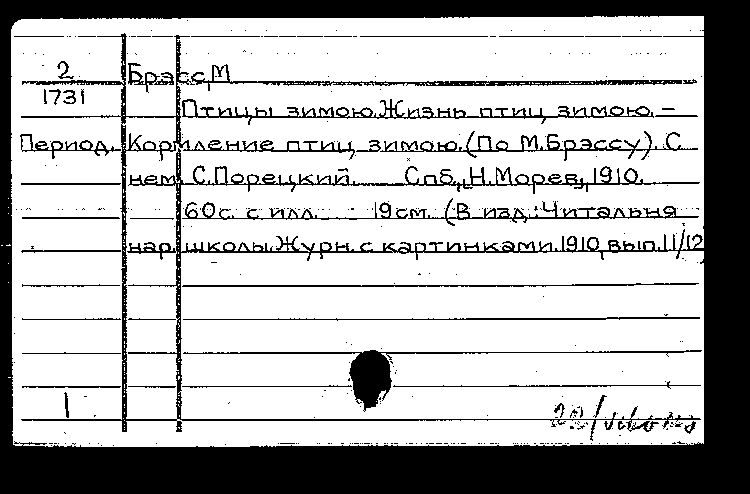 2
1731
Период.
Брэсс, М.
Птицы зимою. Жизнь птиц зимою. –
Кормление птиц зимою. (По М.Брэссу). С
нем. С.Порецкий. Спб, „Н.Морев", 1910.
60с. с илл. 19см. (В изд.: Читальня
нар. школы. Журн. с картинками. 1910, вып. 11/12)
1
22/